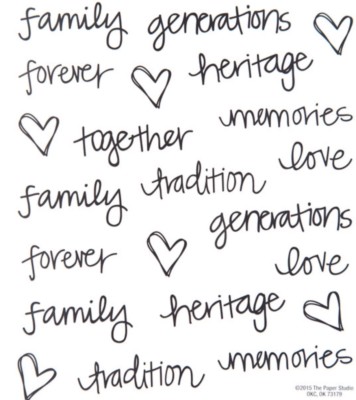 family generations
forever heritage
memories
together
love
family tradition
generations
forever
love
family heritage
memories
tradition
©2015 The Paper Studio
OKC, OK 73179